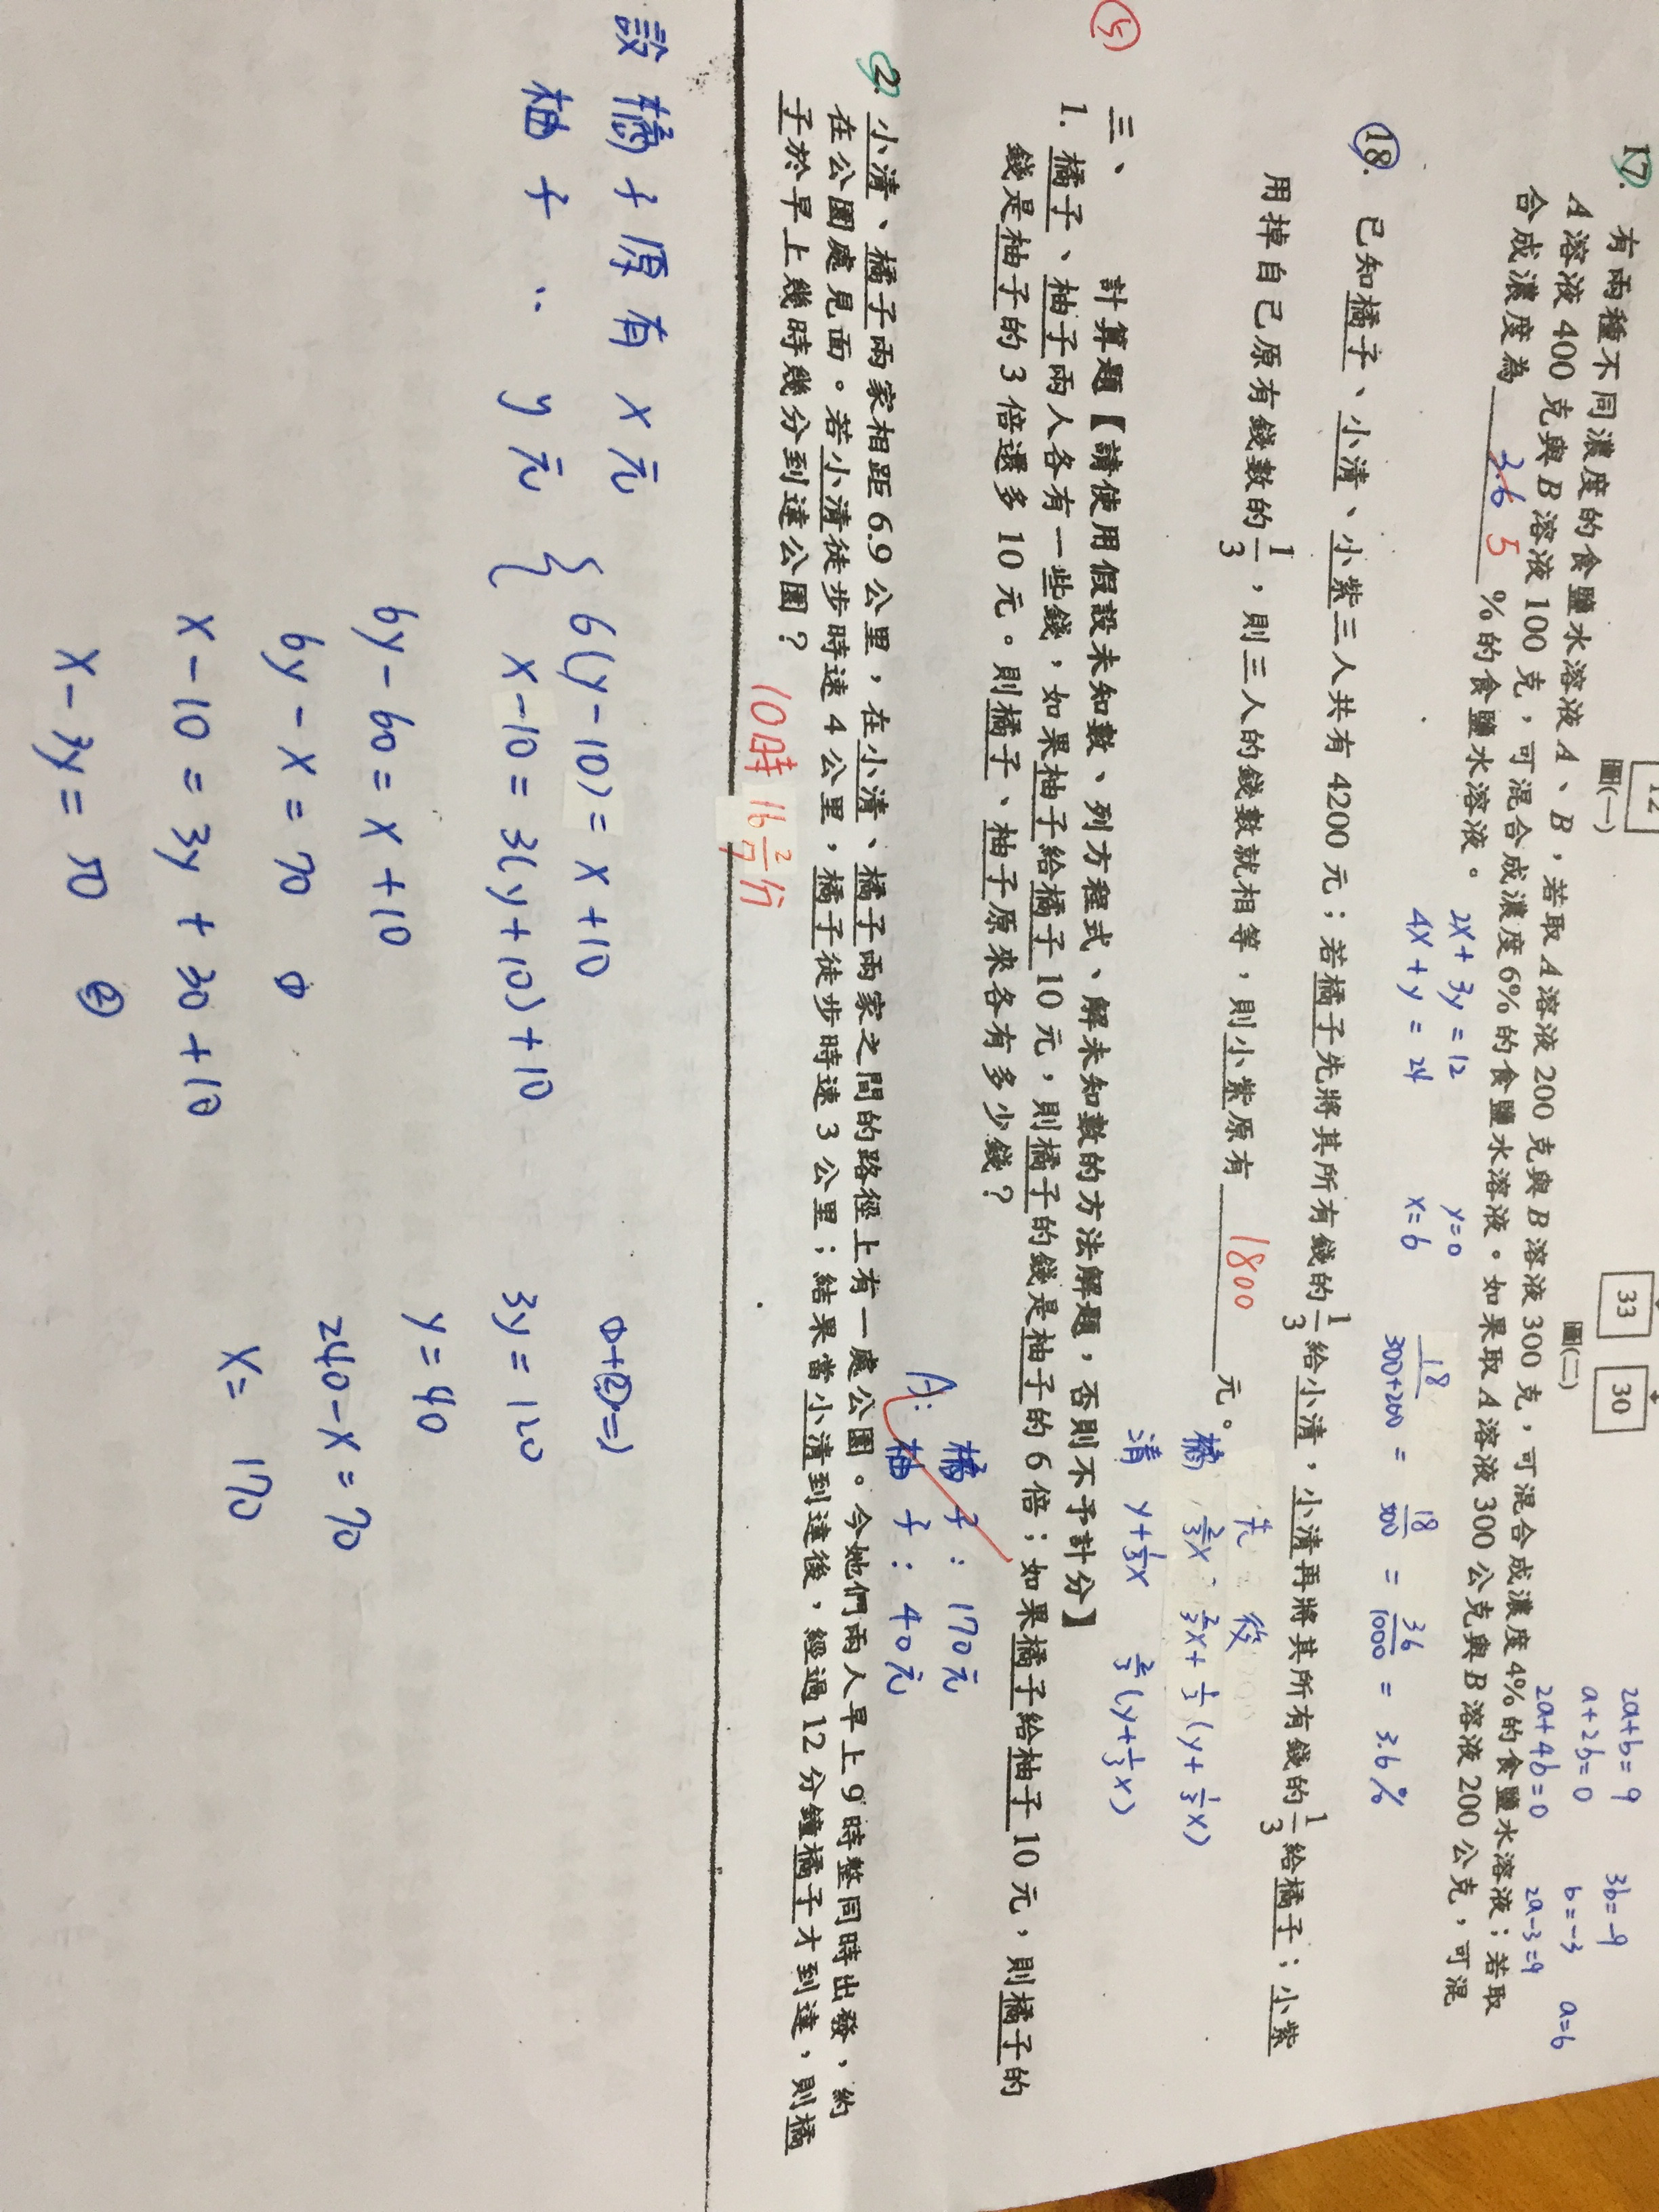 12
圖(一)
33
30
圖(二)
17. 有兩種不同濃度的食鹽水溶液 A、B,若取 A 溶液 200 克與 B 溶液 300 克,可混合成濃度 4% 的食鹽水溶液;若取
A 溶液 400 克與 B 溶液 100 克,可混合成濃度 6% 的食鹽水溶液。如果取 A 溶液 300 公克與 B 溶液 200 公克,可混
合成濃度為 3.6 5 % 的食鹽水溶液。
2a+b=9
a+2b=0
2a+4b=0
3b=-9
b=-3
2a-3=9
a=6
2x+3y=12
4x+y=24
y=0
x=6
18/300+200 = 18/500 = 36/1000 = 3.6%
18. 已知橘子、小清、小紫三人共有 4200 元;若橘子先將其所有錢的 1/3 給小清,小清再將其所有錢的 1/3 給橘子;小紫
用掉自己原有錢數的 1/3,則三人的錢數就相等,則小紫原有 1800 元。
先 後
橘 2/3x 2/3x+1/3(y+1/3x)
清 y+1/3x 2/3(y+1/3x)
5
三、 計算題【請使用假設未知數、列方程式、解未知數的方法解題,否則不予計分】
1. 橘子、柚子兩人各有一些錢,如果柚子給橘子 10 元,則橘子的錢是柚子的 6 倍;如果橘子給柚子 10 元,則橘子的
錢是柚子的 3 倍還多 10 元。則橘子、柚子原來各有多少錢?
A: 橘子:170元
柚子:40元
2. 小清、橘子兩家相距 6.9 公里,在小清、橘子兩家之間的路徑上有一處公園。今她們兩人早上 9 時整同時出發,約
在公園處見面。若小清徒步時速 4 公里,橘子徒步時速 3 公里;結果當小清到達後,經過 12 分鐘橘子才到達,則橘
子於早上幾時幾分到達公園?
10時 16 2/7 分
設橘子原有 x 元
柚子 〃 y 元
{ 6(y-10)=x+10
x-10=3(y+10)+10
6y-60=x+10
6y-x=70 ①
x-10=3y+30+10
x-3y=50 ②
①+②=>
3y=120
y=40
240-x=70
x=170